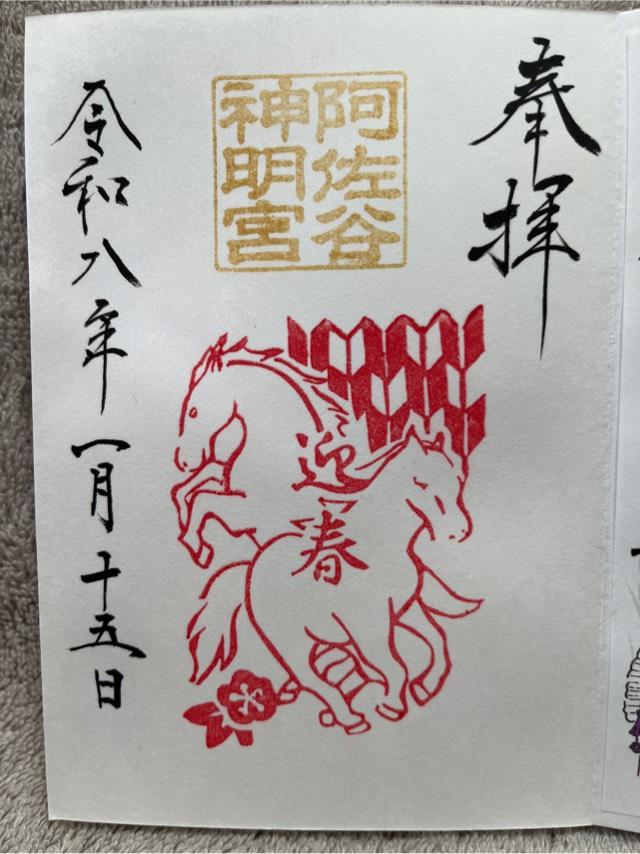 奉拝
阿佐谷
神明宮
迎春
令和八年一月十五日